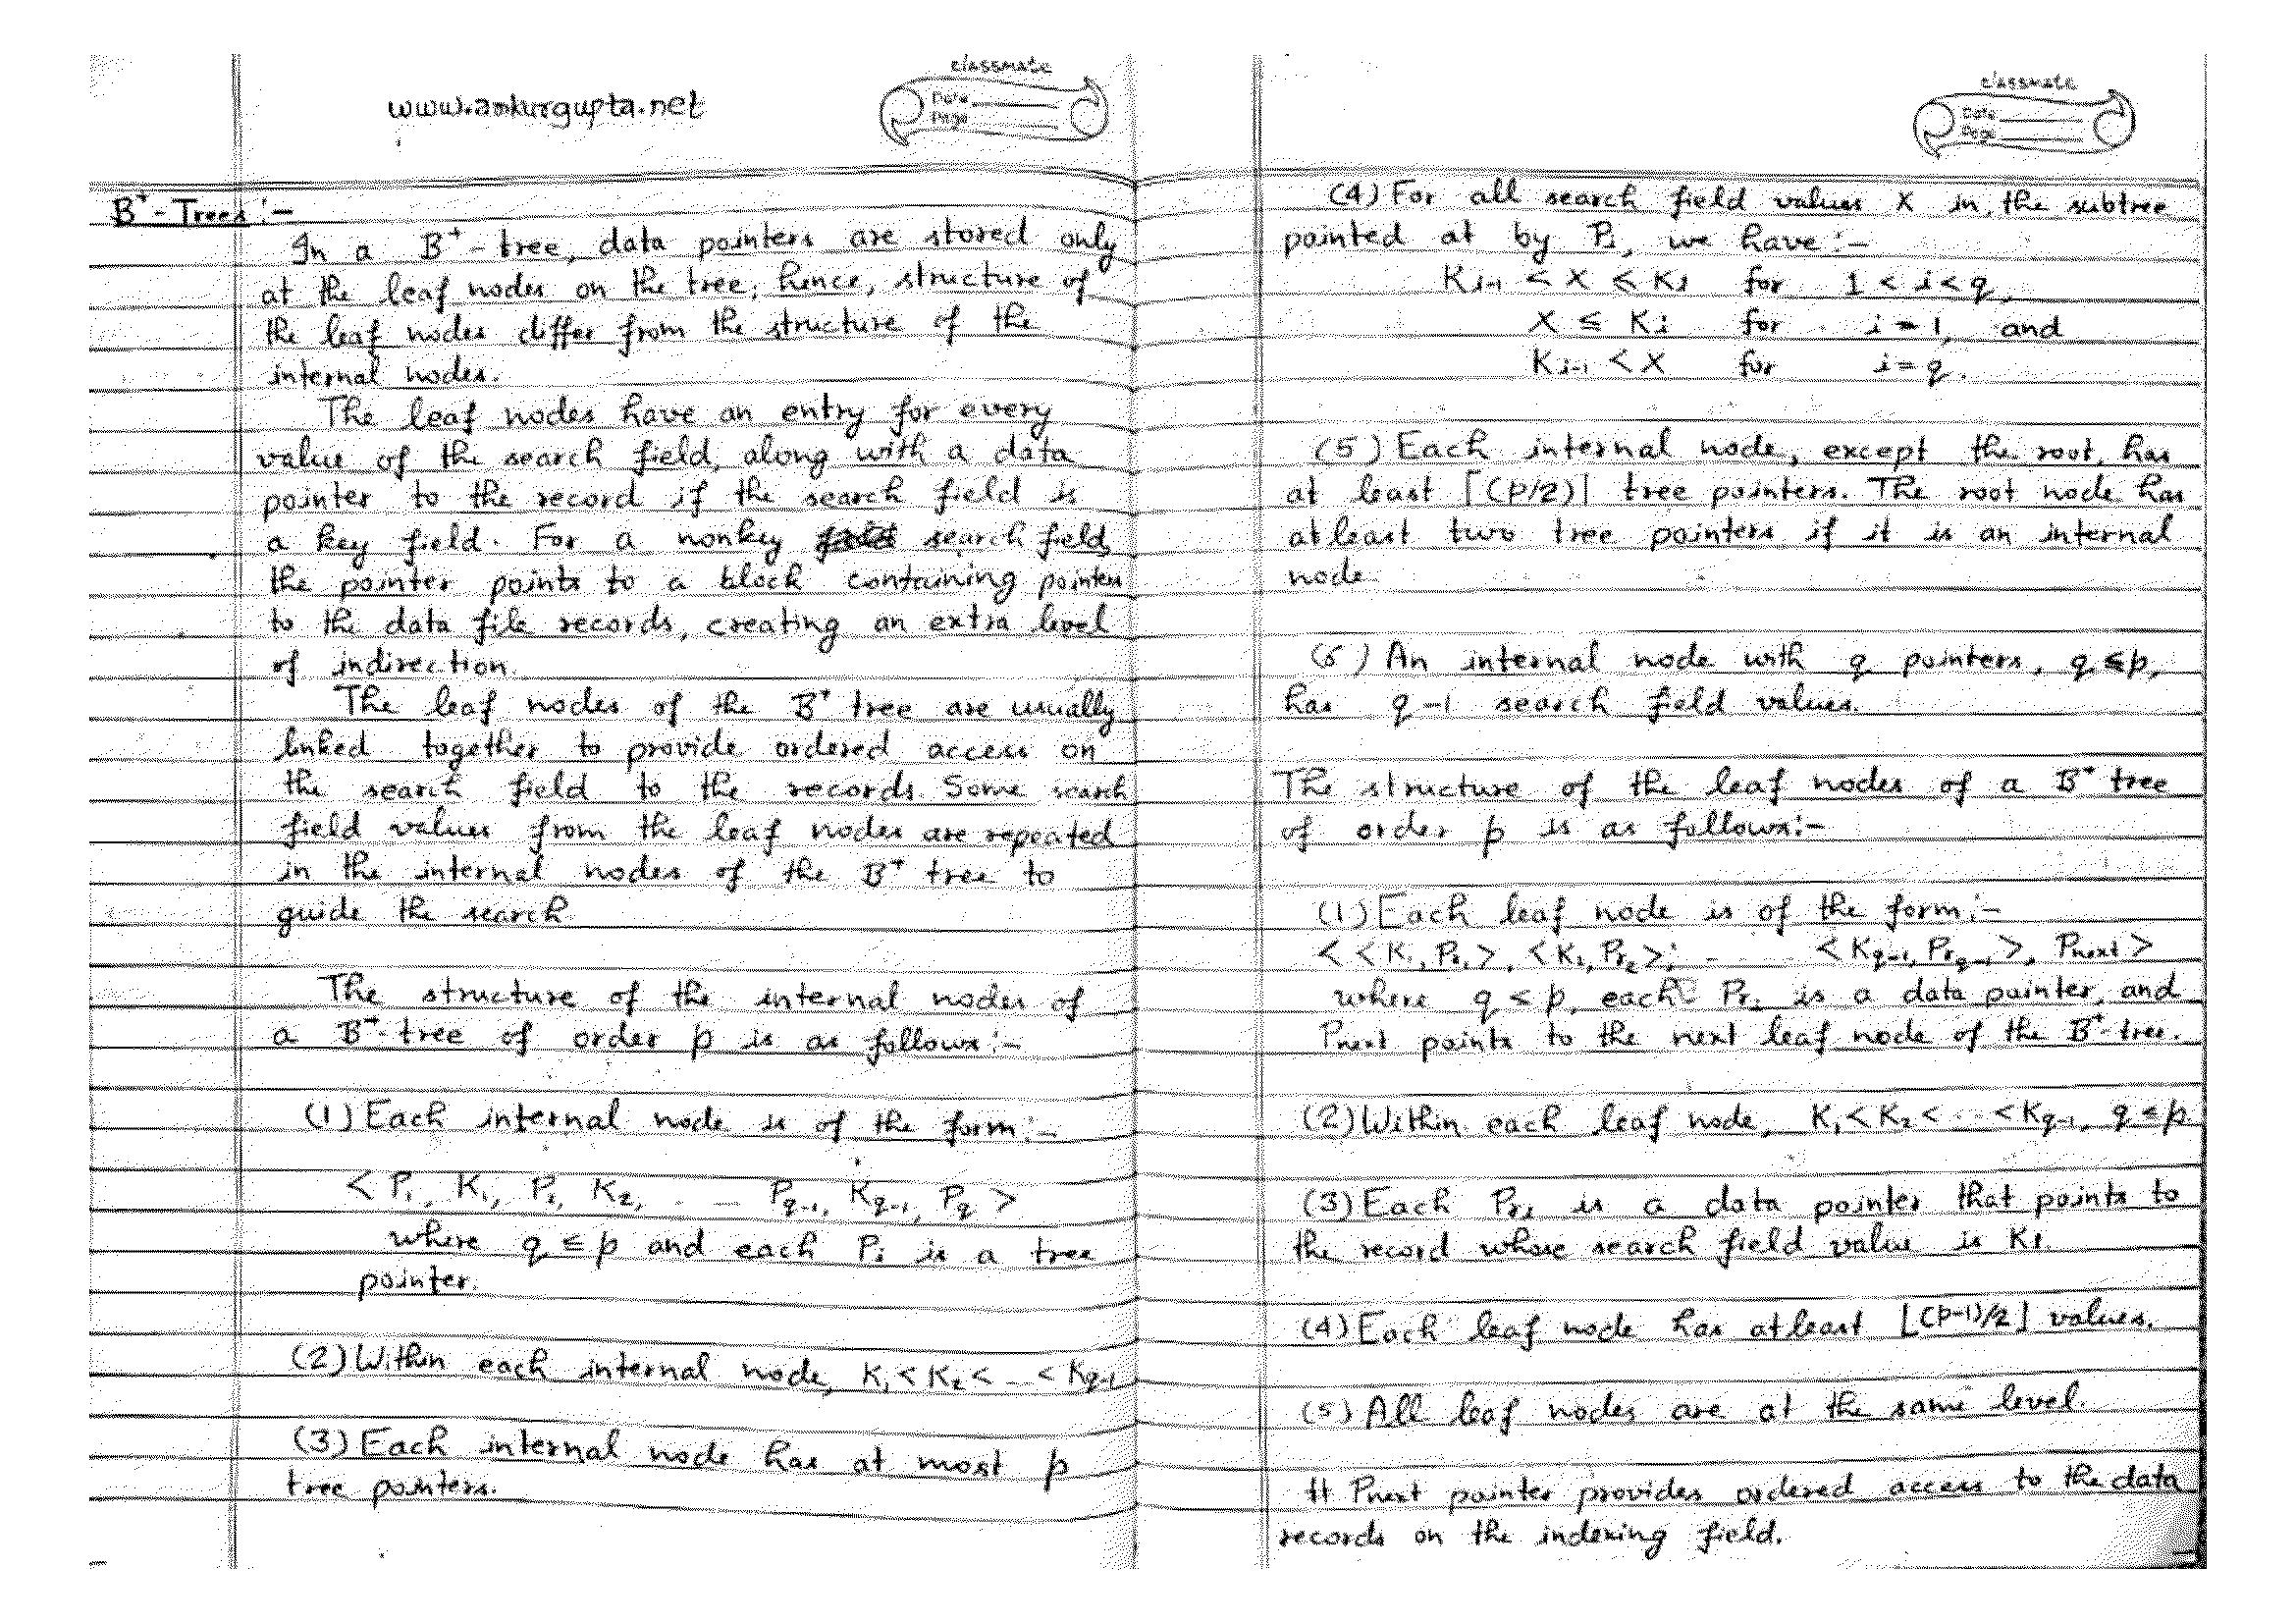 www.ankurgupta.net
classmate
Date
Page
B⁺-Trees :-
In a B⁺-tree, data pointers are stored only
at the leaf nodes on the tree; hence, structure of
the leaf nodes differ from the structure of the
internal nodes.
The leaf nodes have an entry for every
value of the search field, along with a data
pointer to the record if the search field is
a key field. For a nonkey search field,
the pointer points to a block containing pointers
to the data file records, creating an extra level
of indirection.
The leaf nodes of the B⁺ tree are usually
linked together to provide ordered access on
the search field to the records. Some search
field values from the leaf nodes are repeated
in the internal nodes of the B⁺ tree to
guide the search
The structure of the internal nodes of
a B⁺-tree of order p is as follows:-
(1) Each internal node is of the form:-
< P₁, K₁, P₂, K₂, . -- Pq-1, Kq-1, Pq >
where q ≤ p and each Pi is a tree
pointer.
(2) Within each internal node, K₁ < K₂ < ... < Kq-1
(3) Each internal node has at most p
tree pointers.
classmate
Date
Page
(4) For all search field values X in the subtree
pointed at by Pi, we have:-
Ki-1 < X ≤ Ki for 1 < i < q,
X ≤ Ki for i = 1, and
Ki-1 < X for i = q.
(5) Each internal node, except the root, has
at least ⌈(p/2)⌉ tree pointers. The root node has
atleast two tree pointers if it is an internal
node.
(6) An internal node with q pointers, q ≤ p,
has q-1 search field values.
The structure of the leaf nodes of a B⁺ tree
of order p is as follows:-
(1) Each leaf node is of the form:-
< < K₁, Pr₁ >, < K₂, Pr₂ >, . . . . < Kq-1, Prq-1 >, Pnext >
where q ≤ p, each Pri is a data pointer, and
Pnext points to the next leaf node of the B⁺-tree.
(2) Within each leaf node, K₁ < K₂ < ... < Kq-1, q ≤ p.
(3) Each Pri is a data pointer that points to
the record whose search field value is Ki.
(4) Each leaf node has atleast ⌊(p-1)/2⌋ values.
(5) All leaf nodes are at the same level.
# Pnext pointer provides ordered access to the data
records on the indexing field.